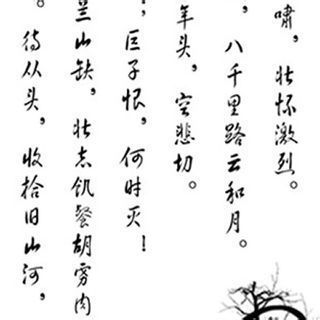 啸，壮怀激烈。
，八千里路云和月。
年头，空悲切。
，臣子恨，何时灭！
兰山缺，壮志饥餐胡虏肉
。待从头，收拾旧山河，